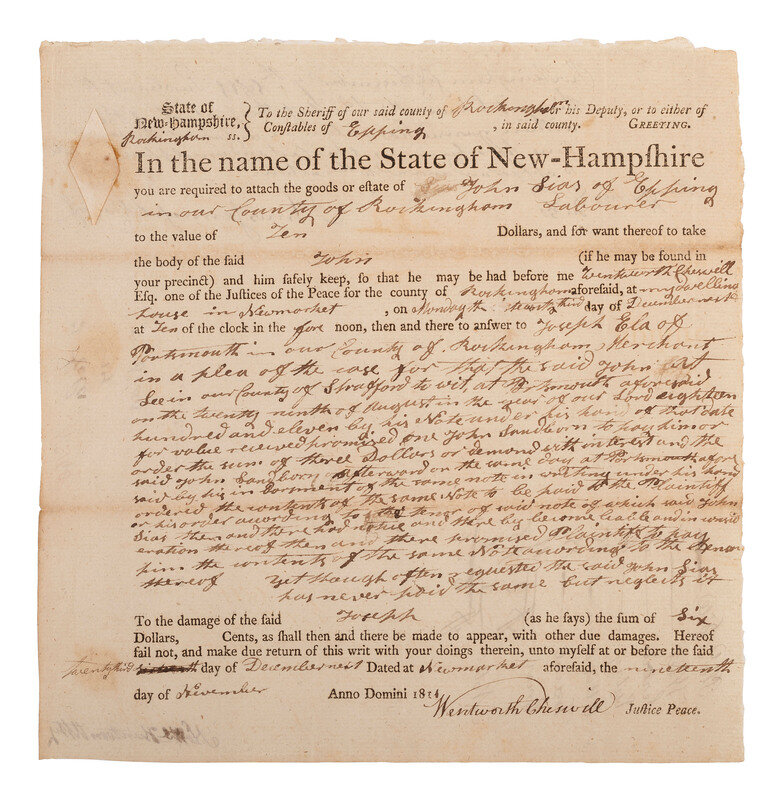 State of
New-Hampſhire,
Rockingham ss.
To the Sheriff of our said county of Rockingham or his Deputy, or to either of
Conſtables of Epping , in said county. GREETING.
In the name of the State of New-Hampſhire
you are required to attach the goods or eſtate of John Sias of Epping
in our County of Rockingham Labourer
to the value of Ten Dollars, and for want thereof to take
the body of the said John (if he may be found in
your precinct) and him ſafely keep, ſo that he may be had before me Wentworth Cheswill
Esq. one of the Justices of the Peace for the county of Rockingham aforesaid, at my dwelling
house in Newmarket , on Monday the twenty third day of December next
at Ten of the clock in the fore noon, then and there to anſwer to Joseph Ela of
Portsmouth in our County of Rockingham Merchant
in a plea of the case for that the said John at
Lee in our County of Strafford to wit at Portsmouth aforesaid
on the twenty ninth of August in the year of our Lord eighteen
hundred and eleven by his Note under his hand of that date
for value received promised one John Sandborn to pay him or
order the sum of three Dollars on demand with interest and the
said John Sandborn afterward on the same day at Portsmouth afore
said by his indorsment of the same note in writing under his hand
ordered the contents of the same Note to be paid to the Plaintiff
or his order according to the tenor of said note of which said John
Sias then and there had notice and there by become liable and in consid
eration thereof then and there promised Plaintiff to pay
him the contents of the same Note according to the tenor
thereof Yet though often requested the said John Sias
has never paid the same but neglects it
To the damage of the said Joseph (as he says) the sum of Six
Dollars, Cents, as shall then and there be made to appear, with other due damages. Hereof
fail not, and make due return of this writ with your doings therein, unto myself at or before the said
twenty third day of December next Dated at Newmarket aforesaid, the nineteenth
day of November Anno Domini 1811
Wentworth Cheswill Juſtice Peace.